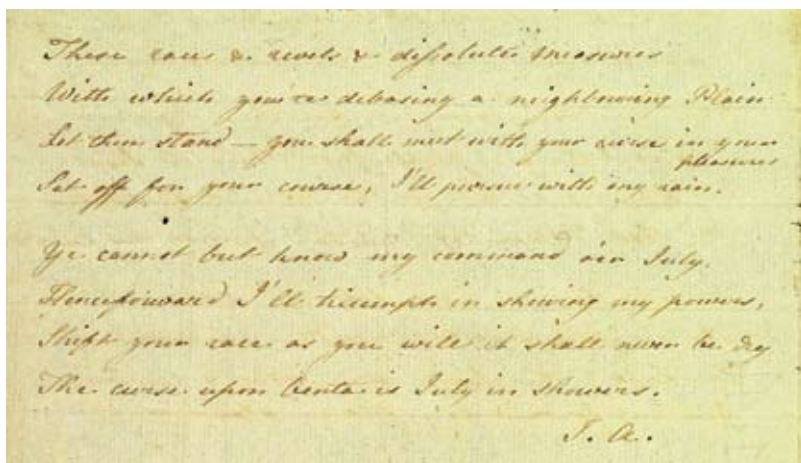 These races & revels & dissolute measures
With which you're debasing a neighbouring Plain
Let them stand — you shall meet with your curse in your
pleasures
Set off for your course, I'll pursue with my rain.
Ye cannot but know my command o'er July.
Henceforward I'll triumph in shewing my powers,
Shift your race as you will it shall never be dry
The curse upon Venta is July in showers.
J. A.